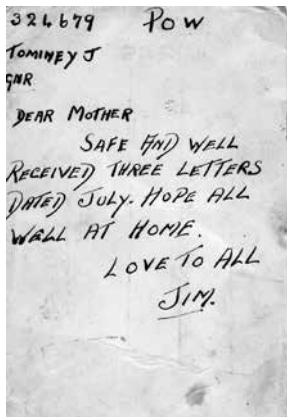 324679 POW
TOMINEY J
GNR
DEAR MOTHER
SAFE AND WELL
RECEIVED THREE LETTERS
DATED JULY. HOPE ALL
WELL AT HOME.
LOVE TO ALL
JIM.